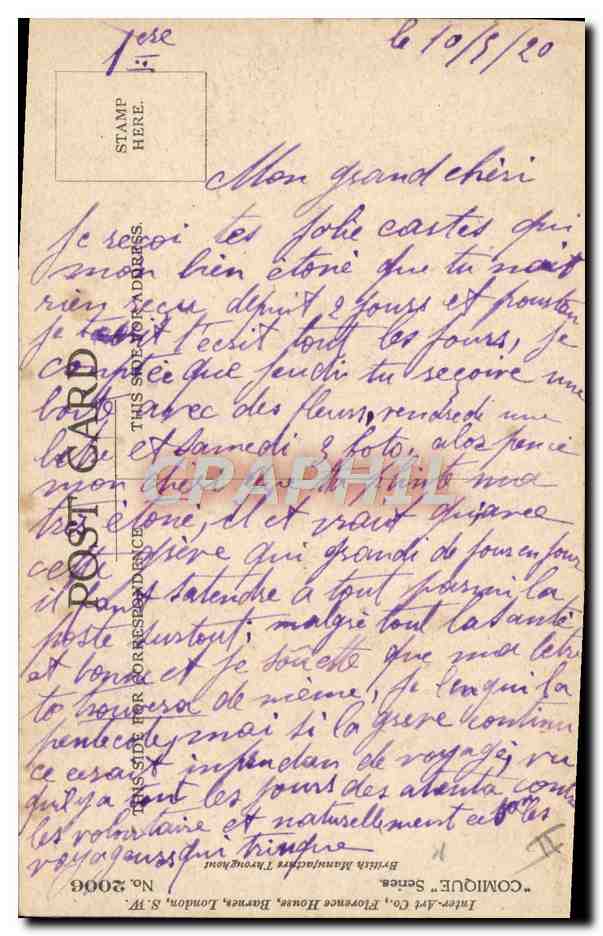 1ère
le 10/5/20
STAMP HERE.
Mon grand chéri
Je reçoi tes jolie cartes qui
mon bien étoné que tu nait
rien reçu depuit 2 jours et pourtan
je t'écrit tout les jours, je
que jeudi tu reçoive une
boite avec des fleurs, vendredi une
et samedi 2 foto, aloz pence
mon cheri que ta ma
trés étoné, il et vrait qu'avec
cette grève qui grandi de jour en jour
il faut satendre a tout parmi la
poste surtout; malgré tout la santé
et bonne et je souette que ma letre
te trouvera de même, je lengui la
pentecote, mai si la greve continu
ce cerait inpendan de voyagé, vu
qu'il y a tout les jours des atenta contre
les volontaire et naturellement ce son les
voyageurs qui trinque
II
POST CARD
THIS SIDE FOR CORRESPONDENCE.
THIS SIDE FOR ADDRESS.
CPAPHIL
British Manufacture Throughout
"COMIQUE" Series. No. 2006
Inter-Art Co., Florence House, Barnes, London, S.W.